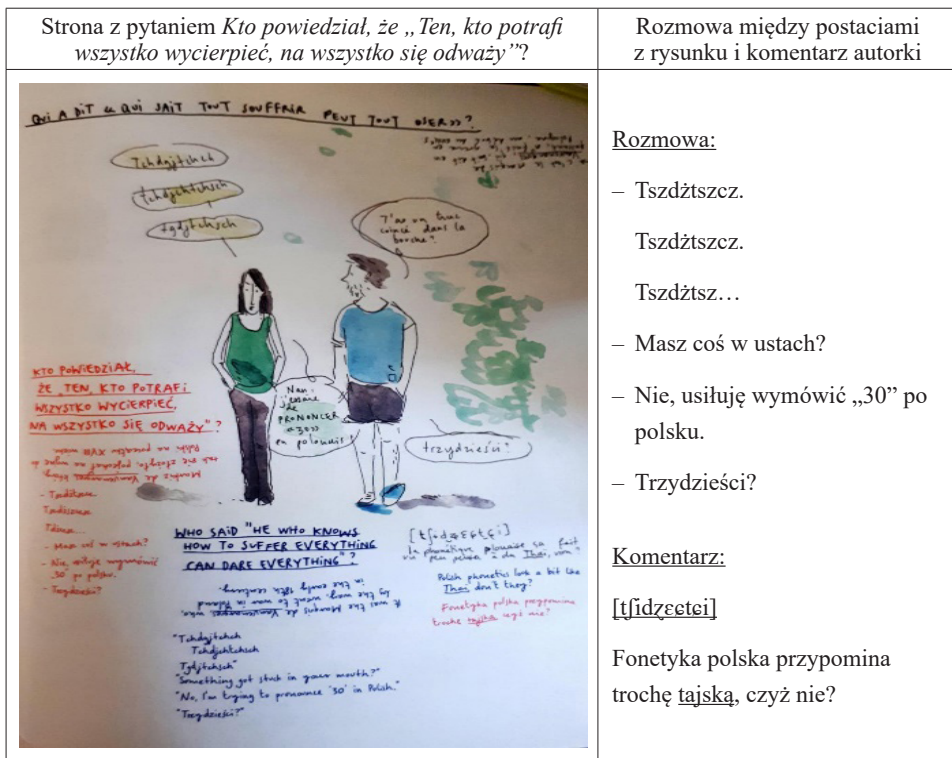 Strona z pytaniem Kto powiedział, że „Ten, kto potrafi
wszystko wycierpieć, na wszystko się odważy”?
Rozmowa między postaciami
z rysunku i komentarz autorki
QUI A DIT « QUI SAIT TOUT SOUFFRIR PEUT TOUT OSER »?
Tchdzjtchsch
Tchdjchtchsch
Tgdjtchsch
T'as un truc
coincé dans la
bouche?
Non,
j'essaie
de
PRONONCER
«30»
en polonais
trzydzieści?
KTO POWIEDZIAŁ,
ŻE „TEN, KTO POTRAFI
WSZYSTKO WYCIERPIEĆ,
NA WSZYSTKO SIĘ ODWAŻY"?
- Masz coś w ustach?
- Nie, usiłuję wymówić
„30" po polsku.
- Trzydzieści?
WHO SAID "HE WHO KNOWS
HOW TO SUFFER EVERYTHING
CAN DARE EVERYTHING"?
It was the Marquis de Vauvenargues who,
by the way, went to war in Poland
in the early 18th century.
"Tchdzjtchsch
Tchdjchtchsch
Tgdjtchsch"
"Something got stuck in your mouth?"
"No, I'm trying to pronounce '30' in Polish."
"Trzydzieści?"
La phonétique polonaise ça fait
un peu penser à du Thai, non?
Polish phonetics look a bit like
Thai don't they?
Fonetyka polska przypomina
trochę tajską czyż nie?
Rozmowa:
– Tszdżtszcz.
Tszdżtszcz.
Tszdżtsz…
– Masz coś w ustach?
– Nie, usiłuję wymówić „30” po
polsku.
– Trzydzieści?
Komentarz:
[tʃidʐɛɕtɕi]
Fonetyka polska przypomina
trochę tajską, czyż nie?